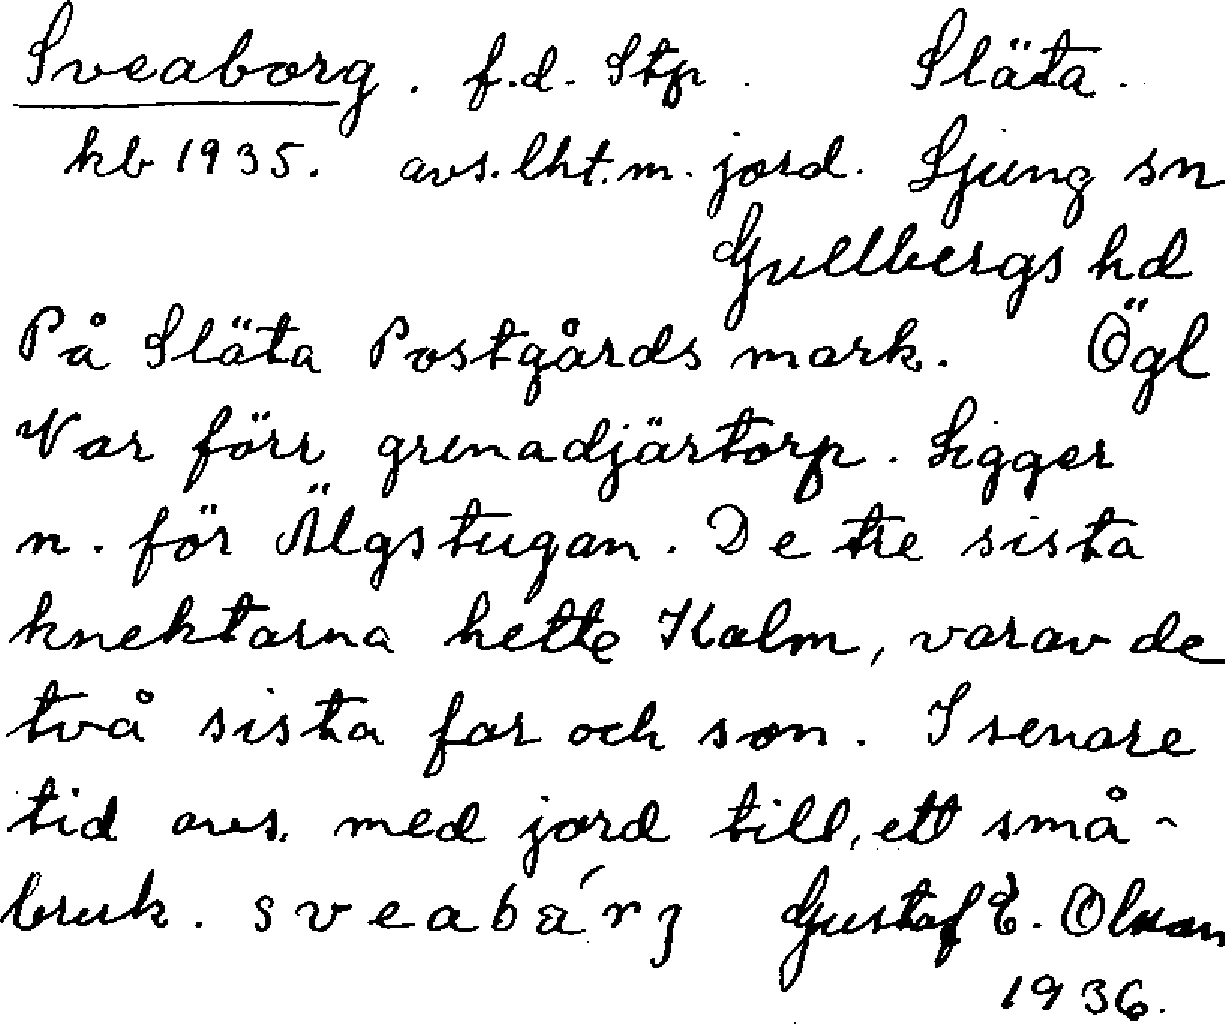 Sveaborg. f.d. Stp. Släta.
kb 1935. avs. lht. m. jord. Ljung sn
Gullbergs hd
På Släta Postgårds mark. Ögl
Var förr grenadjärtorp. Ligger
n. för Älgstugan. De tre sista
knektarna hette Kalm, varav de
två sista far och son. I senare
tid avs. med jord till, ett små-
bruk. sveabárj Gustaf E. Olson
1936.